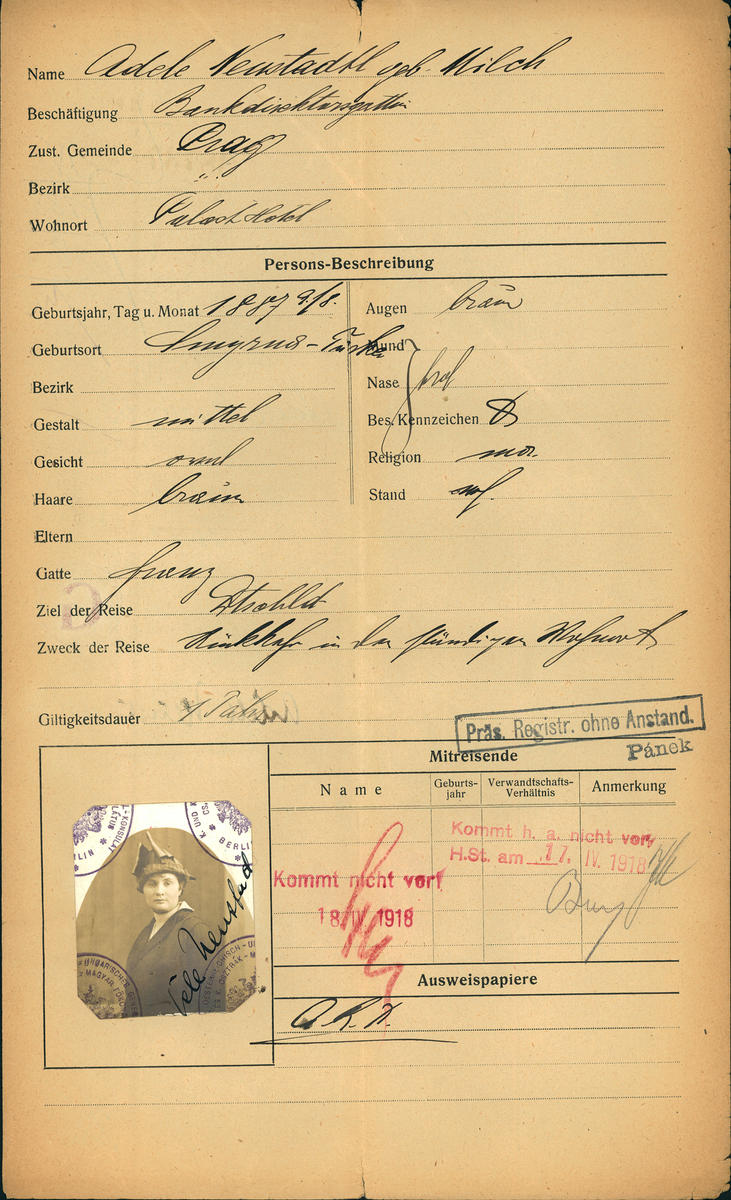 Name Adele Neustadtl geb. Milch
Beschäftigung Bankdirektorsgattin
Zust. Gemeinde Prag
Bezirk "
Wohnort Palast Hotel
Persons-Beschreibung
Geburtsjahr, Tag u. Monat 1887 9/8.
Geburtsort Smyrna - Türkei
Bezirk
Gestalt mittel
Gesicht oval
Haare braun
Augen braun
Mund
Nase prop
Bes. Kennzeichen
Religion mos.
Stand verh.
Eltern
Gatte Franz
Ziel der Reise Dtschld
Zweck der Reise Rückkehr in den ständigen Wohnort
Giltigkeitsdauer 1 Jahr
Präs. Registr. ohne Anstand.
Pánek
Mitreisende
Name
Geburts-
jahr
Verwandtschafts-
Verhältnis
Anmerkung
Kommt h. a. nicht vor,
H.St. am 17. IV. 1918
Kommt nicht vor!
18 IV 1918
Ausweispapiere
BERLIN
Neustadtl